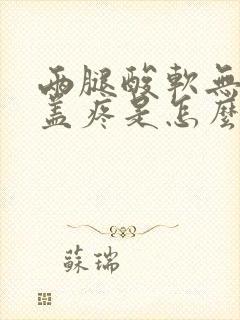 兩腿酸軟無
蓋疼是怎麼
蘇瑞